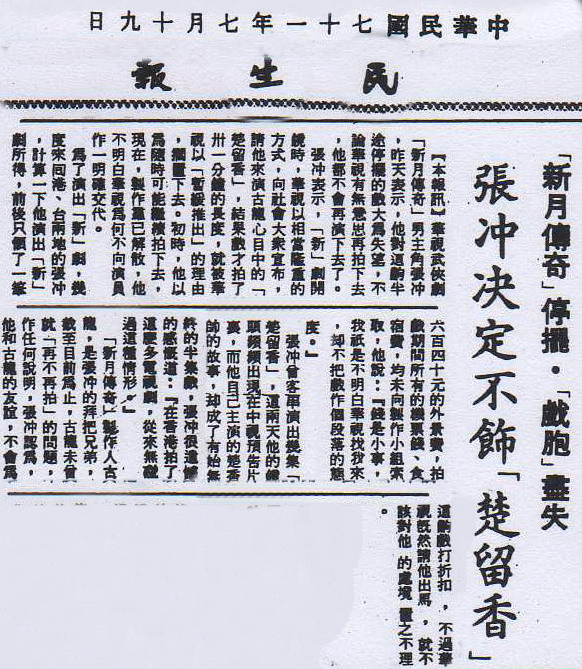 中華民國七十一年七月十九日
民生報
「新月傳奇」停擺・「戲胞」盡失
張冲決定不飾「楚留香」
【本報訊】華視武俠劇
「新月傳奇」男主角張冲
,昨天表示,他對這齣半
途停擺的戲大為失望,不
論華視有無意思再拍下去
,他都不會再演下去了。
張冲表示,「新」劇開
鏡時,華視以相當隆重的
方式,向社會大衆宣布,
請他來演古龍心目中的「
楚留香」,結果戲才拍了
卅一分鐘的長度,就被華
視以「暫緩推出」的理由
,擱置下去。初時,他以
為隨時可能繼續拍下去,
現在,製作羣已解散,他
不明白華視為何不向演員
作一明確交代。
為了演出「新」劇,幾
度來囘港、台兩地的張冲
,計算一下他演出「新」
劇所得,前後只領了一筆
六百四十元的外景費,拍
戲期間所有的機票錢、食
宿費,均未向製作小組索
取,他說:『錢是小事,
我祇是不明白華視找我來
,却不把戲作個段落的態
度。』
張冲曾客串演出幾集「
楚留香」,這兩天他的鏡
頭頻頻出現在中視預告片
裏,而他自己主演的楚香
帥的故事,却成了有始無
終的半集戲,張冲很遺憾
的感慨道:『在香港拍了
這麼多電視劇,從來無碰
過這種情形。』
「新月傳奇」製作人古
龍,是張冲的拜把兄弟,
截至目前為止,古龍未曾
就「再不再拍」的問題,
作任何說明,張冲認為,
他和古龍的友誼,不會為
這齣戲打折扣,不過華
視旣然請他出馬,就不
該對他的處境置之不理
。